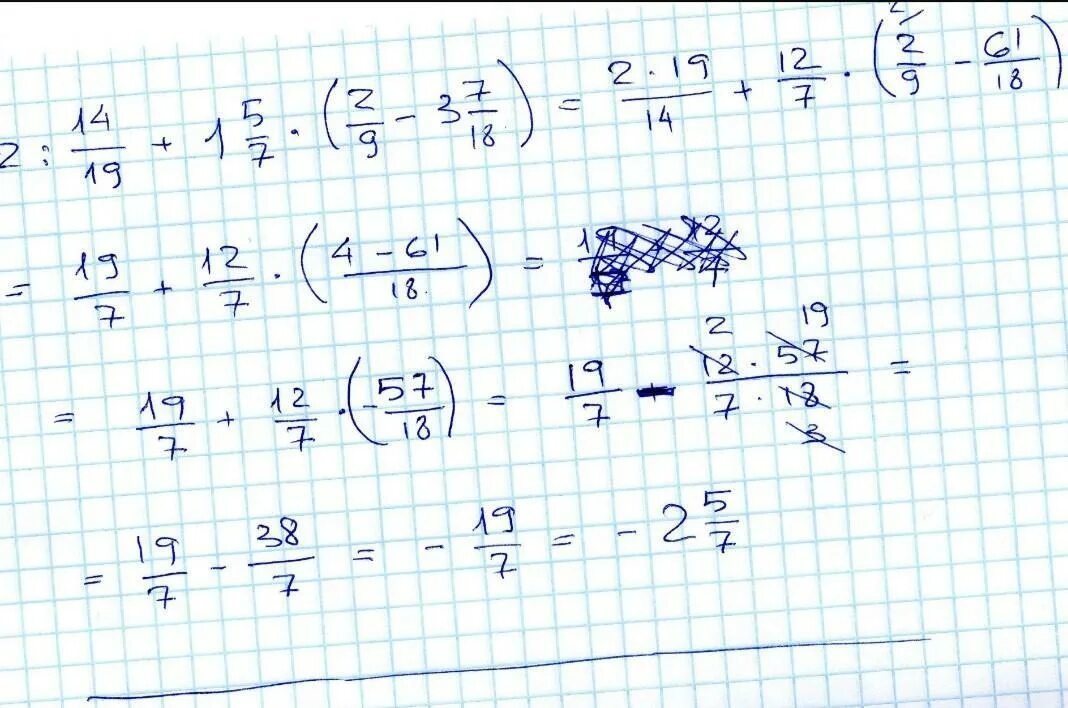 2 : 14/19 + 1 5/7 · (2/9 - 3 7/18) = 2·19/14 + 12/7 · (2/9 - 61/18)
= 19/7 + 12/7 · (4-61/18) =
= 19/7 + 12/7 · (-57/18) = 19/7 - 12·57/7·18 =
= 19/7 - 38/7 = - 19/7 = - 2 5/7